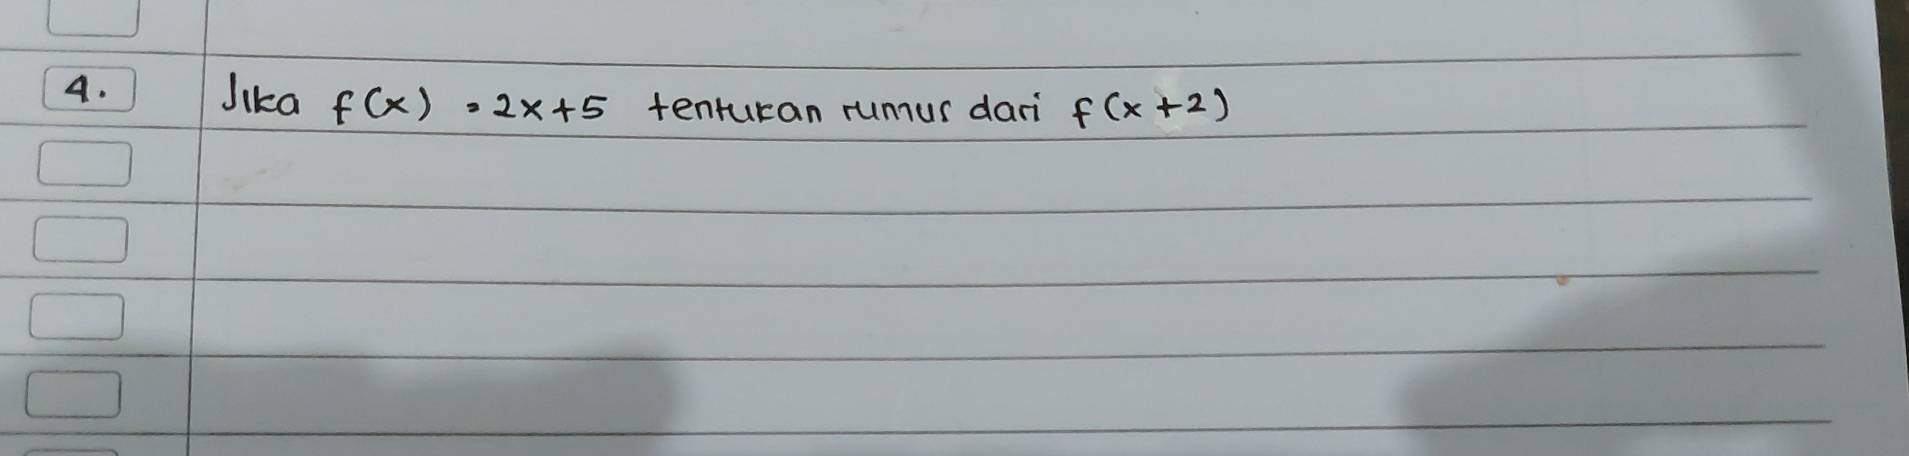 4. Jika f(x) = 2x+5 tentukan rumus dari f(x+2)